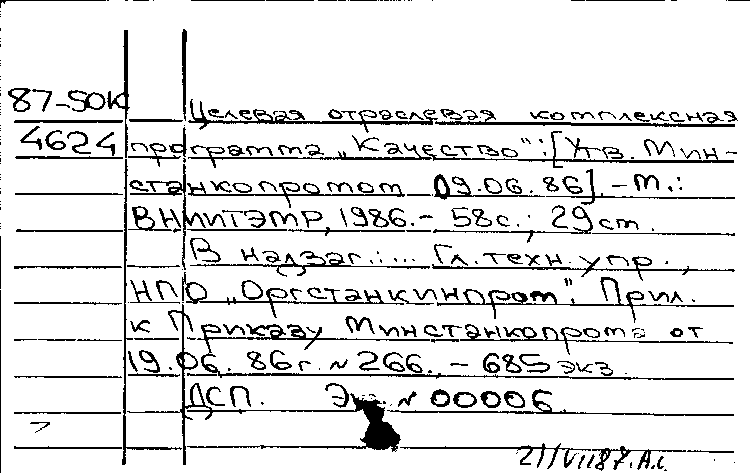 87-50К
Целевая отраслевая комплексная
4624 программа „Качество": [Утв. Мин-
станкопромом 09.06.86]. – М.:
ВНИИТЭМР, 1986. – 58 с.; 29 см.
В надзаг.: ... Гл. техн. упр.,
НПО „Оргстанкинпром". Прил.
к Приказу Минстанкопрома от
19.06.86 г. N 266. – 685 экз.
ДСП. Экз. N 00006.